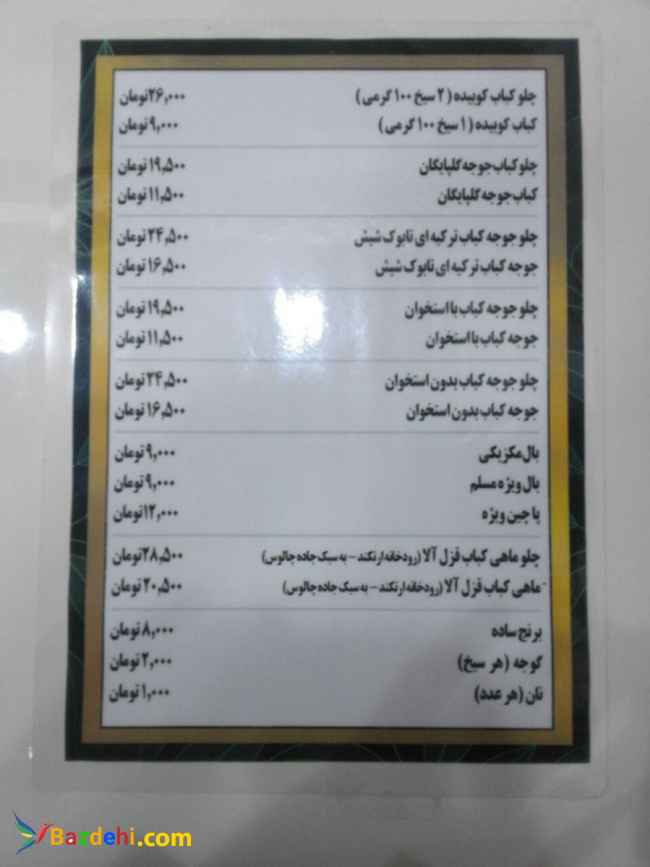 چلو کباب کوبیده ( ۲ سیخ ۱۰۰ گرمی ) ۲۶,۰۰۰ تومان
کباب کوبیده ( ۱ سیخ ۱۰۰ گرمی ) ۹,۰۰۰ تومان
چلو کباب جوجه گلپایگان ۱۹,۵۰۰ تومان
کباب جوجه گلپایگان ۱۱,۵۰۰ تومان
چلو جوجه کباب ترکیه ای تابوک شیش ۲۴,۵۰۰ تومان
جوجه کباب ترکیه ای تابوک شیش ۱۶,۵۰۰ تومان
چلو جوجه کباب با استخوان ۱۹,۵۰۰ تومان
جوجه کباب با استخوان ۱۱,۵۰۰ تومان
چلو جوجه کباب بدون استخوان ۲۴,۵۰۰ تومان
جوجه کباب بدون استخوان ۱۶,۵۰۰ تومان
بال مکزیکی ۹,۰۰۰ تومان
بال ویژه مسلم ۹,۰۰۰ تومان
پاچین ویژه ۱۲,۰۰۰ تومان
چلو ماهی کباب قزل آلا (رودخانه ارتکند - به سبک جاده چالوس) ۲۸,۵۰۰ تومان
ماهی کباب قزل آلا (رودخانه ارتکند - به سبک جاده چالوس) ۲۰,۵۰۰ تومان
برنج ساده ۸,۰۰۰ تومان
گوجه (هر سیخ) ۲,۰۰۰ تومان
نان (هر عدد) ۱,۰۰۰ تومان
Bazdehi.com